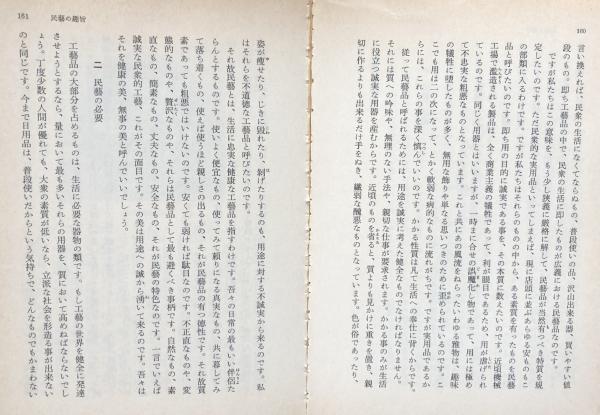 160
言い換えれば、民衆の生活になくてならぬもの、普段使いの品、沢山出来る器、買いやすい値
段のもの。即ち工藝品の中で、民衆の生活に即したものが広義における民藝品なのです。
ですが私たちはこの意味を、もう少し狭義に厳格に解して、民藝品が当然有つべき特質を規
定したいのです。ただ民衆的な実用品といってしまえば、現に店頭に並ぶあらゆる安ものもこ
の部類に入るわけです。ですが私たちはそれらのものの中から、ある素質を有ったものを民藝
品と呼びたいのです。即ち用の目的に誠実である事を、その本質に数えたいのです。近頃機械
工場で濫造される製品は、全く商業主義の犠牲であって、利が眼目であるため、用が虐げられ
ているのです。同じく用器とはいいますが、一時まに合せの誤魔化し物であって、用には極め
て不忠実な粗悪なものになっています。これと共にあの風流をねらったいわゆる雅物は、趣味
の犠牲に堕したものが多く、無用な飾りや単なる思いつきのために歪められているのです。こ
こでも用は二の次になって、とかく軟弱な病的なものに流れがちです。ですが実用品であるか
らには、これらの事を深く慎んでいいのです。かかる性質は凡て生活への奉仕に背くからです。
従って民藝品と呼ばれるためには、用途を誠実に考えた健全なものでなければなりません。
それには質への吟味や、無理のない手法や、親切な仕事が要求されます。かかる事のみが生活
に役立つ誠実な用器を産むからです。近頃のものを省ると、質よりも見かけに重きを置き、親
切に作るよりも出来るだけ手をぬき、繊弱な醜悪なものとなっています。色が俗であったり、
161　民藝の趣旨
姿が痩せたり、じきに毀れたり、剝げたりするのも、用途に対する不誠実から来るのです。私
はそれらを不道徳な工藝品と呼びたいのです。
それ故民藝とは、生活に忠実な健康な工藝品を指すわけです。吾々の日常の最もいい伴侶た
らんとするものです。使いよく便宜なもの、使ってみて頼りになる真実なもの、共に暮してみ
て落ち着くもの、使えば使うほど親しさの出るもの、それが民藝品の有つ徳性です。それ故質
素であっても粗悪ではいけないのです。安くても弱ければ駄目なのです。不正直なものや、変
態的なものや、贅沢なものや、それらは民藝品として最も避くべき事柄です。自然なもの、素
直なもの、簡素なもの、丈夫なもの、安全なもの、それが民藝の特色なのです。一言でいえば
誠実な民衆的工藝、これがその面目です。その美は用途への誠から湧いて来るのです。吾々は
それを健康の美、無事の美と呼んでいいでしょう。
二　民藝の必要
工藝品の大部分を占めるものは、生活に必要な器物の類です。もし工藝の世界を健全に発達
させようとするなら、量において最も多いそれらの用器を、質において高めねばならないでし
ょう。丁度少数の人間が優れても、大衆の素質が低いなら、立派な社会を形造る事が出来ない
のと同じです。今まで日用品は、普段使いだからという気持ちで、どんなものでもかまわない